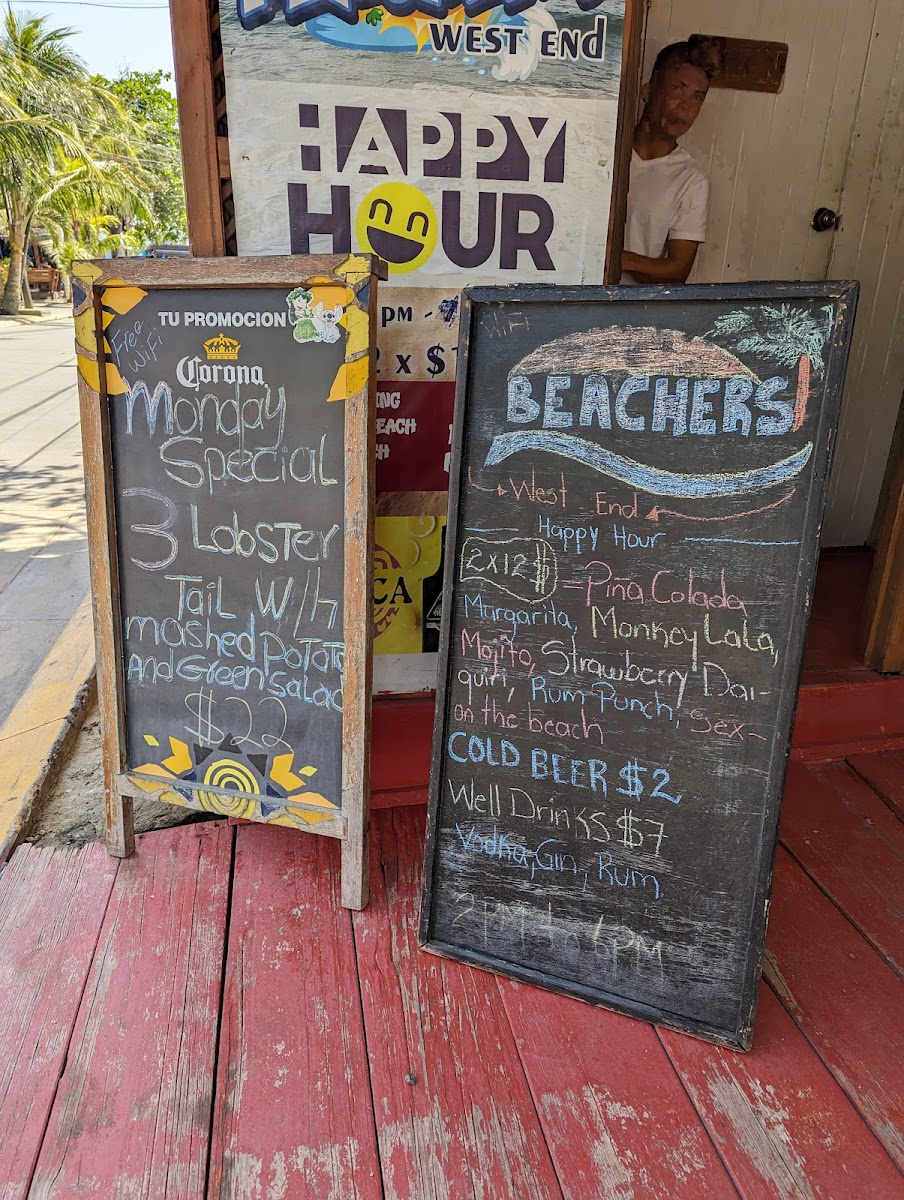 WEST END
HAPPY
HOUR
PM -
2 x $1
EACH
Free
WiFi
TU PROMOCION
Corona
Monday
Special
3 Lobster
Tail W/h
mashed potato
And Green Salad
$22
WiFi
BEACHERS
West End
Happy Hour
2x12$ = Piña Colada
Margarita, Monkey Lala,
Mojito, Strawberry Dai-
quiri, Rum Punch, Sex-
on the beach
COLD BEER $2
Well Drinks $7
Vodka, Gin, Rum,
2 PM to 6 PM